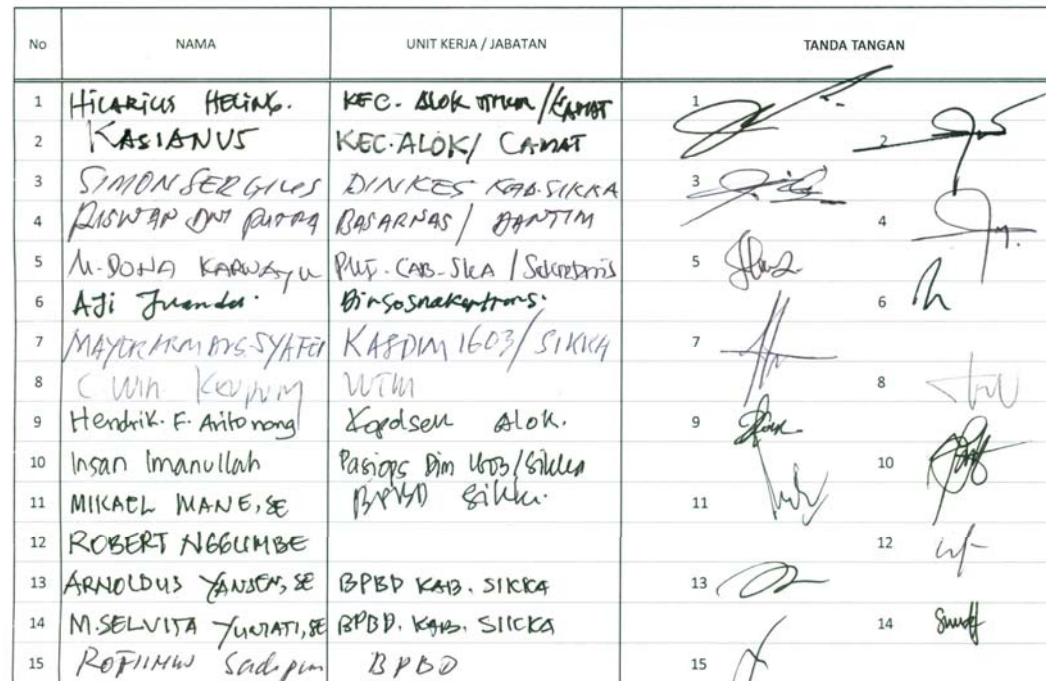 No NAMA UNIT KERJA / JABATAN TANDA TANGAN
1 HILARIUS HELING. KEC. ALOK TIMUR / CAMAT 1
2 KASIANUS KEC. ALOK / CAMAT 2
3 SIMON SERGIUS DINKES KAB. SIKKA 3
4 RISWAN DWI PUTRA BASARNAS / DANTIM 4
5 M. DONA KAB. SKA / Sekretaris 5
6 AJi Juanda. Dinsosnakertrans. 6
7 MAYOR ARM KASDIM 1603 / SIKKA 7
8 C Win 8
9 Hendrik. F. Aritonang Kapolsek Alok. 9
10 Insan Imanullah Pasiops Dim 1603 / Sikka 10
11 MIKAEL MANE, SE BPBD Sikka. 11
12 ROBERT NGGUMBE 12
13 ARNOLDUS YANSEN, SE BPBD KAB. SIKKA 13
14 M. SELVITA YUNIATI, SE BPBD. KAB. SIKKA 14
15 BPBD 15